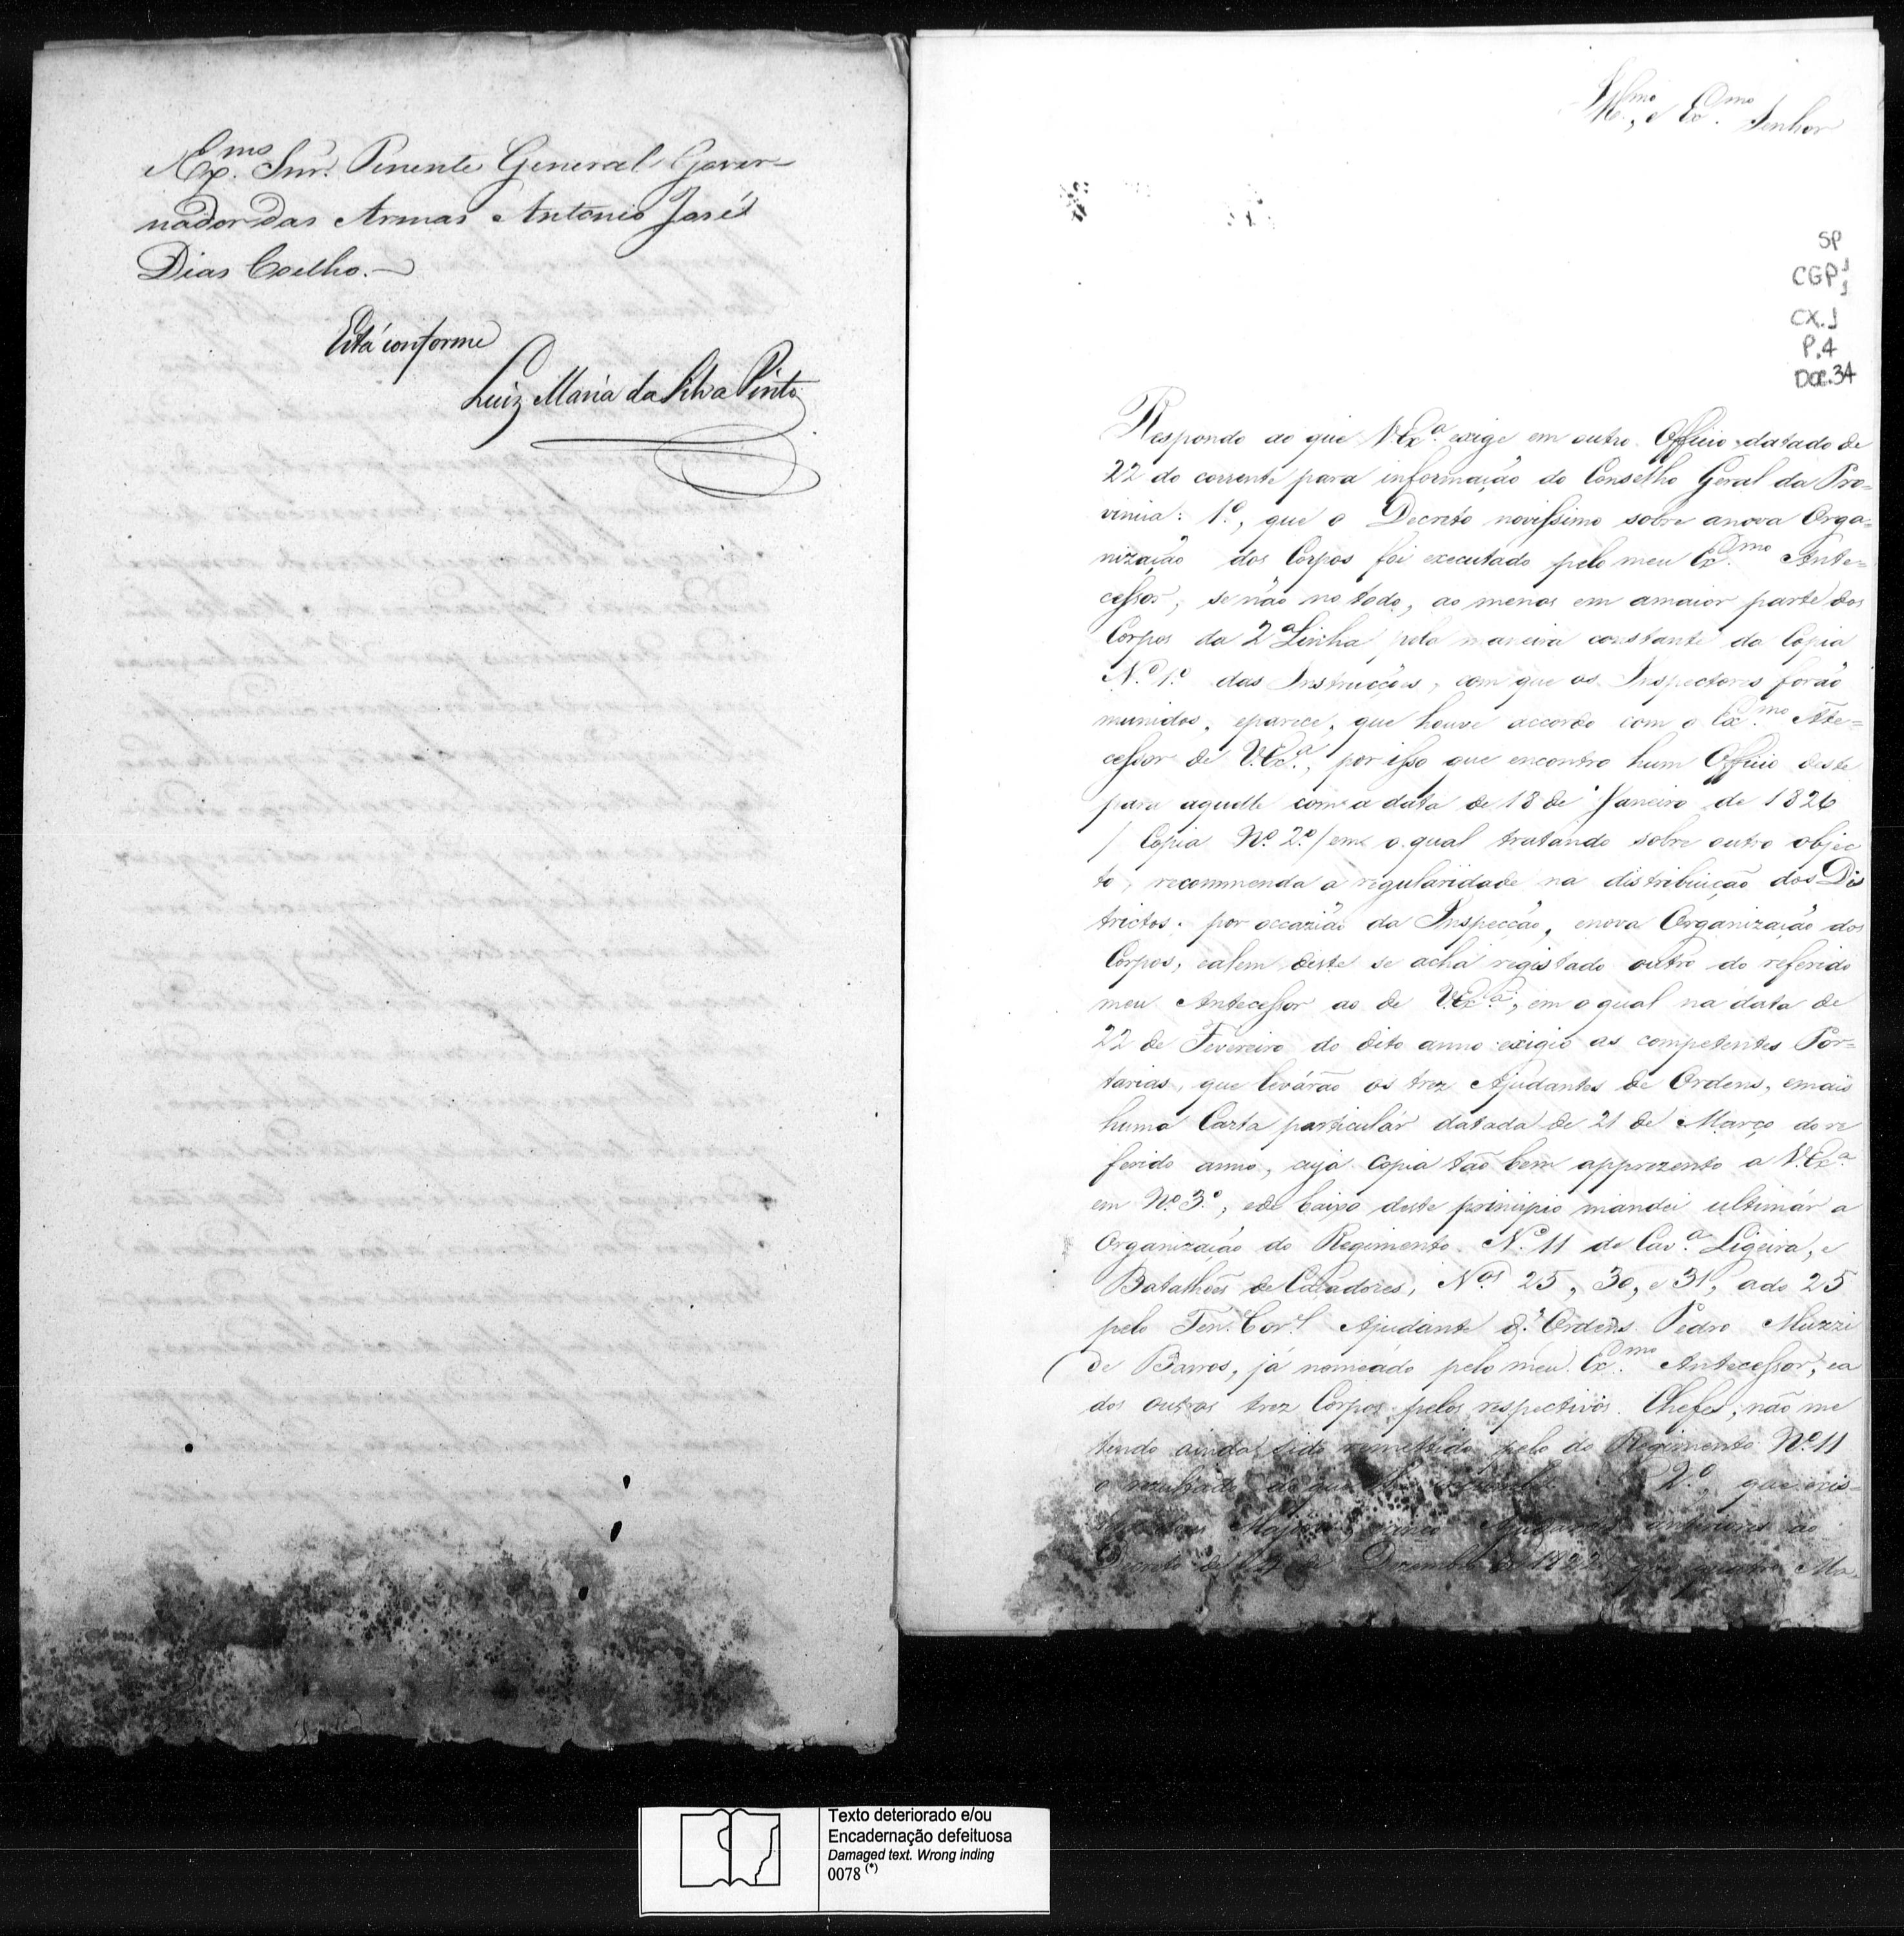 Ex.mo Snr. Tenente General Gover-
nador das Armas Antonio José
Dias Coelho.—
Está conforme
Luiz Maria da Silva Pinto
Ill.mo, e Ex.mo Senhor
SP
CGP1
CX.1
P.4
DOC.34
Respondo ao que V.Exª. exige em outro Officio datado de
22 do corrente para informação do Conselho Geral da Pro=
vincia: 1º., que o Decreto novissimo sobre anova Orga=
nização dos Corpos foi executado pelo meu Ex.mo Ante=
cessor, se não no todo, ao menos em amaior parte dos
Corpos da 2ª Linha pela maneira constante da Copia
N.º 1.º das Instrucções, com que os Inspectores forão
munidos, eparece, que houve accordo com o Ex.mo Ante=
cessor de V.Exª., por isso que encontro hum Officio deste
para aquelle com a data de 18 de Janeiro de 1826
/ Copia Nº. 2º./ em o qual tratando sobre outro objec
to, recommenda a regularidade na distribuição dos Dis
trictos. por occazião da Inspecção, enova Organização dos
Corpos, ealem deste se acha registado outro do referido
meu Antecessor ao de V.Exª., em o qual na data de
22 de Fevereiro do dito anno exigio as competentes Por=
tarias, que levárão os trez Ajudantes de Ordens, emais
huma Carta particular datada de 21 de Março do re
ferido anno, cuja copia tão bem apprezento a V.Exª.
em Nº. 3º., ede baixo deste principio mandei ultimár a
Organização do Regimento N.º 11 de Cav.ª Ligeira, e
Batalhões de Caçadores, N.os 25, 30, e 31, ado 25
pelo Ten. Cor.l Ajudante d'Ordens Pedro Muzzi
de Barros, já nomeado pelo meu Ex.mo Antecessor, ea
dos outros trez Corpos pelos respectivos Chefes, não me
tendo ainda sido remettido pelo do Regimento Nº. 11
o resultado 2º., que exis=
Majores, cinco Ajudantes anteriores ao
Decreto de de Dezembro de 1822 quatro Ma=
Texto deteriorado e/ou
Encadernação defeituosa
Damaged text. Wrong inding
0078 (*)